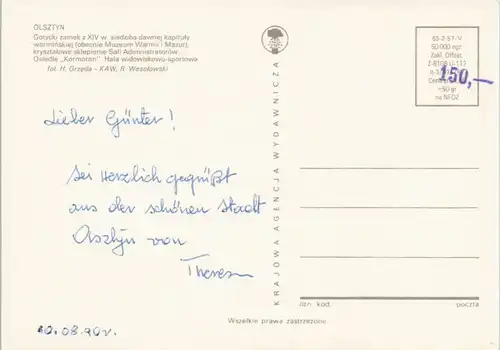 OLSZTYN
Gotycki zamek z XIV w. siedziba dawnej kapituły
warmińskiej (obecnie Muzeum Warmii i Mazur),
kryształowe sklepienie Sali Administratorów.
Osiedle „Kormoran” Hala widowiskowo-sportowa
fot. H. Grzęda - KAW, R. Wesołowski
65-2-57-V
50.000 egz.
Zakł. Offset.
150,—
na NFOZ
Lieber Günter!
Sei Herzlich gegrüßt
aus der schönen Stadt
Oszlyn von
Theres
KRAJOWA AGENCJA WYDAWNICZA
poczta
Wszelkie prawa zastrzeżone.
10.08.90r.